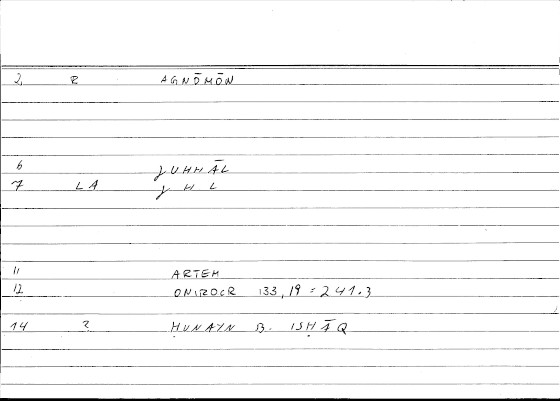 2 R AGNŌMŌN
6 ǧUHHĀL
7 LA ǧHL
11 ARTEM
12 ONIROCR 133,19 = 241.3
14 2 ḤUNAYN B. ISḤĀQ